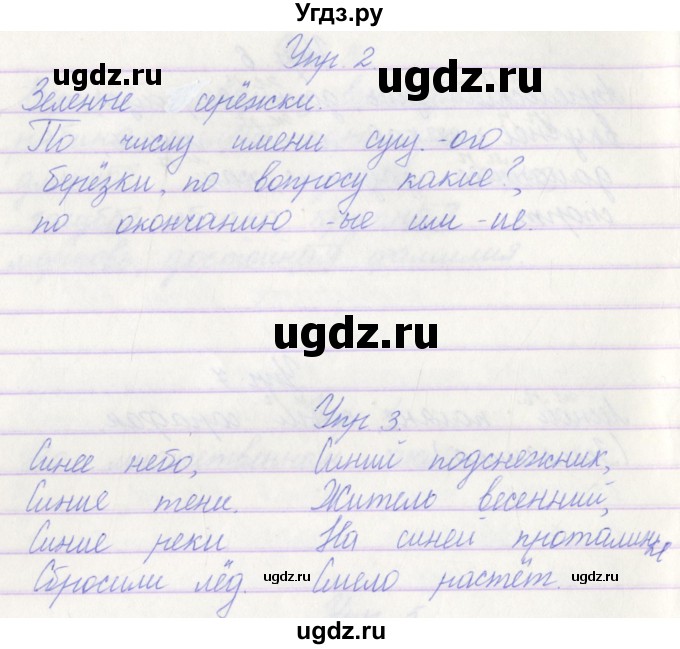 Угдз.ру
Упр 2.
Зелёные серёжки.
По числу имени сущ.-ого
берёзки, по вопросу какие?,
по окончанию -ые или -ие.
ugdz.ru
ugdz.ru
ugdz.ru
Упр 3.
Синее небо,
Синие тени.
Синие реки
Сбросили лёд.
Синий подснежник,
Житель весенний,
На синей проталинке
Смело растёт.
ugdz.ru
ugdz.ru
ugdz.ru